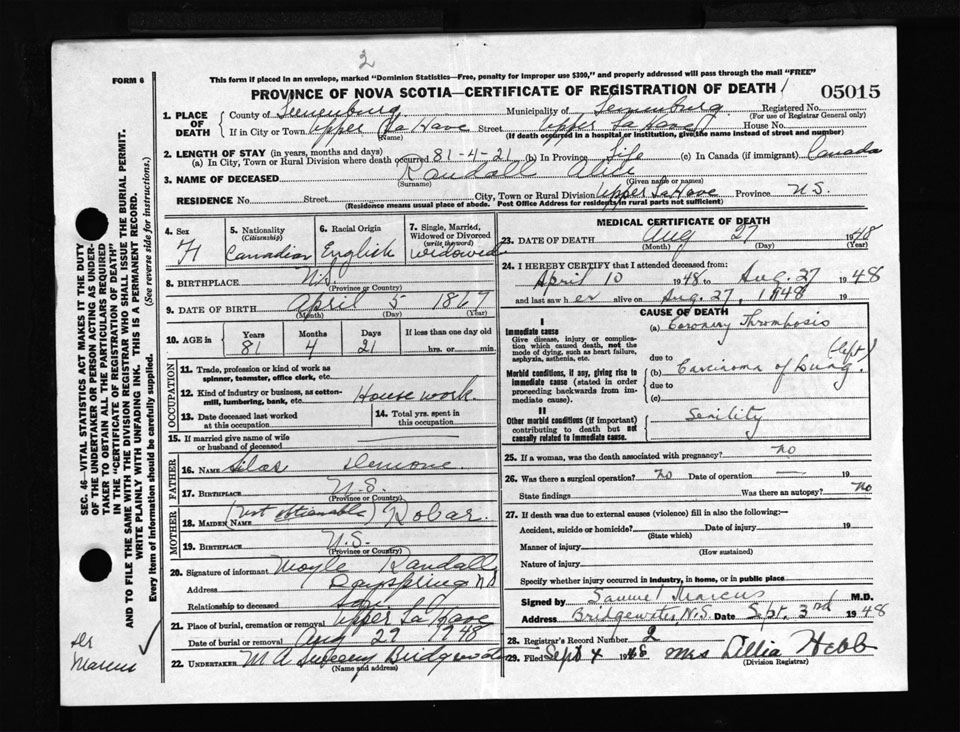 2
FORM 6
This form if placed in an envelope, marked "Dominion Statistics—Free, penalty for improper use $300," and properly addressed will pass through the mail "FREE"
PROVINCE OF NOVA SCOTIA—CERTIFICATE OF REGISTRATION OF DEATH
05015
1. PLACE OF DEATH
County of Lunenburg Municipality of Lunenburg Registered No.
(For use of Registrar General only)
If in City or Town Upper La Have Street Upper La Have House No.
(Name) (If death occurred in a hospital or institution, give the name instead of street and number)
2. LENGTH OF STAY (in years, months and days)
(a) In City, Town or Rural Division where death occurred 81-4-21 (b) In Province Life (c) In Canada (if immigrant) Canada
3. NAME OF DECEASED Randall Alice
(Surname) (Given name or names)
RESIDENCE No. Street City, Town or Rural Division Upper La Have Province N.S.
(Residence means usual place of abode. Post Office Address for residents in rural parts not sufficient)
4. Sex F
5. Nationality (Citizenship) Canadian
6. Racial Origin English
7. Single, Married, Widowed or Divorced (write the word) Widowed
8. BIRTHPLACE N.S.
(Province or Country)
9. DATE OF BIRTH April 5 1867
(Month) (Day) (Year)
10. AGE in Years Months Days If less than one day old
81 4 21 hrs. or min.
OCCUPATION
11. Trade, profession or kind of work as spinner, teamster, office clerk, etc.
12. Kind of industry or business, as cotton-mill, lumbering, bank, etc. House work.
13. Date deceased last worked at this occupation
14. Total yrs. spent in this occupation
15. If married give name of wife or husband of deceased
FATHER
16. Name Silas Demone
17. BIRTHPLACE N.S.
(Province or Country)
MOTHER
18. MAIDEN NAME (not obtainable) Hobar.
19. BIRTHPLACE N.S.
(Province or Country)
20. Signature of informant Moyle Randall
Address Dayspring N.S.
Relationship to deceased son
21. Place of burial, cremation or removal Upper La Have
Date of burial or removal Aug 29 1948
22. UNDERTAKER M A Sweeny Bridgewater
(Name and address)
MEDICAL CERTIFICATE OF DEATH
23. DATE OF DEATH Aug 27 1948
(Month) (Day) (Year)
24. I HEREBY CERTIFY that I attended deceased from:
April 10 1948 to Aug. 27 1948
and last saw her alive on Aug. 27, 1948 19
CAUSE OF DEATH
I
Immediate cause
Give disease, injury or complication which caused death, not the mode of dying, such as heart failure, asphyxia, asthenia, etc.
(a) Coronary Thrombosis
due to
Morbid conditions, if any, giving rise to immediate cause (stated in order proceeding backwards from immediate cause).
(b) Carcinoma of Lung. (left)
due to
(c)
II
Other morbid conditions (if important) contributing to death but not causally related to immediate cause.
Senility
25. If a woman, was the death associated with pregnancy? no
26. Was there a surgical operation? no Date of operation — 19
State findings Was there an autopsy? no
27. If death was due to external causes (violence) fill in also the following:—
Accident, suicide or homicide? Date of injury 19
(State which)
Manner of injury
(How sustained)
Nature of injury
Specify whether injury occurred in industry, in home, or in public place
Signed by Samuel Marcus M.D.
Address Bridgewater, N.S. Date Sept. 3rd 1948
28. Registrar's Record Number 2
29. Filed Sept 4 1948 Mrs Dellia Hebb
(Division Registrar)
SEC. 46—VITAL STATISTICS ACT MAKES IT THE DUTY
OF THE UNDERTAKER OR PERSON ACTING AS UNDER-
TAKER TO OBTAIN ALL THE PARTICULARS REQUIRED
IN THE "CERTIFICATE OF REGISTRATION OF DEATH"
AND TO FILE THE SAME WITH THE DIVISION REGISTRAR WHO SHALL ISSUE THE BURIAL PERMIT.
WRITE PLAINLY WITH UNFADING INK. THIS IS A PERMANENT RECORD.
Every item of information should be carefully supplied. (See reverse side for instructions.)
Dr
Marcus